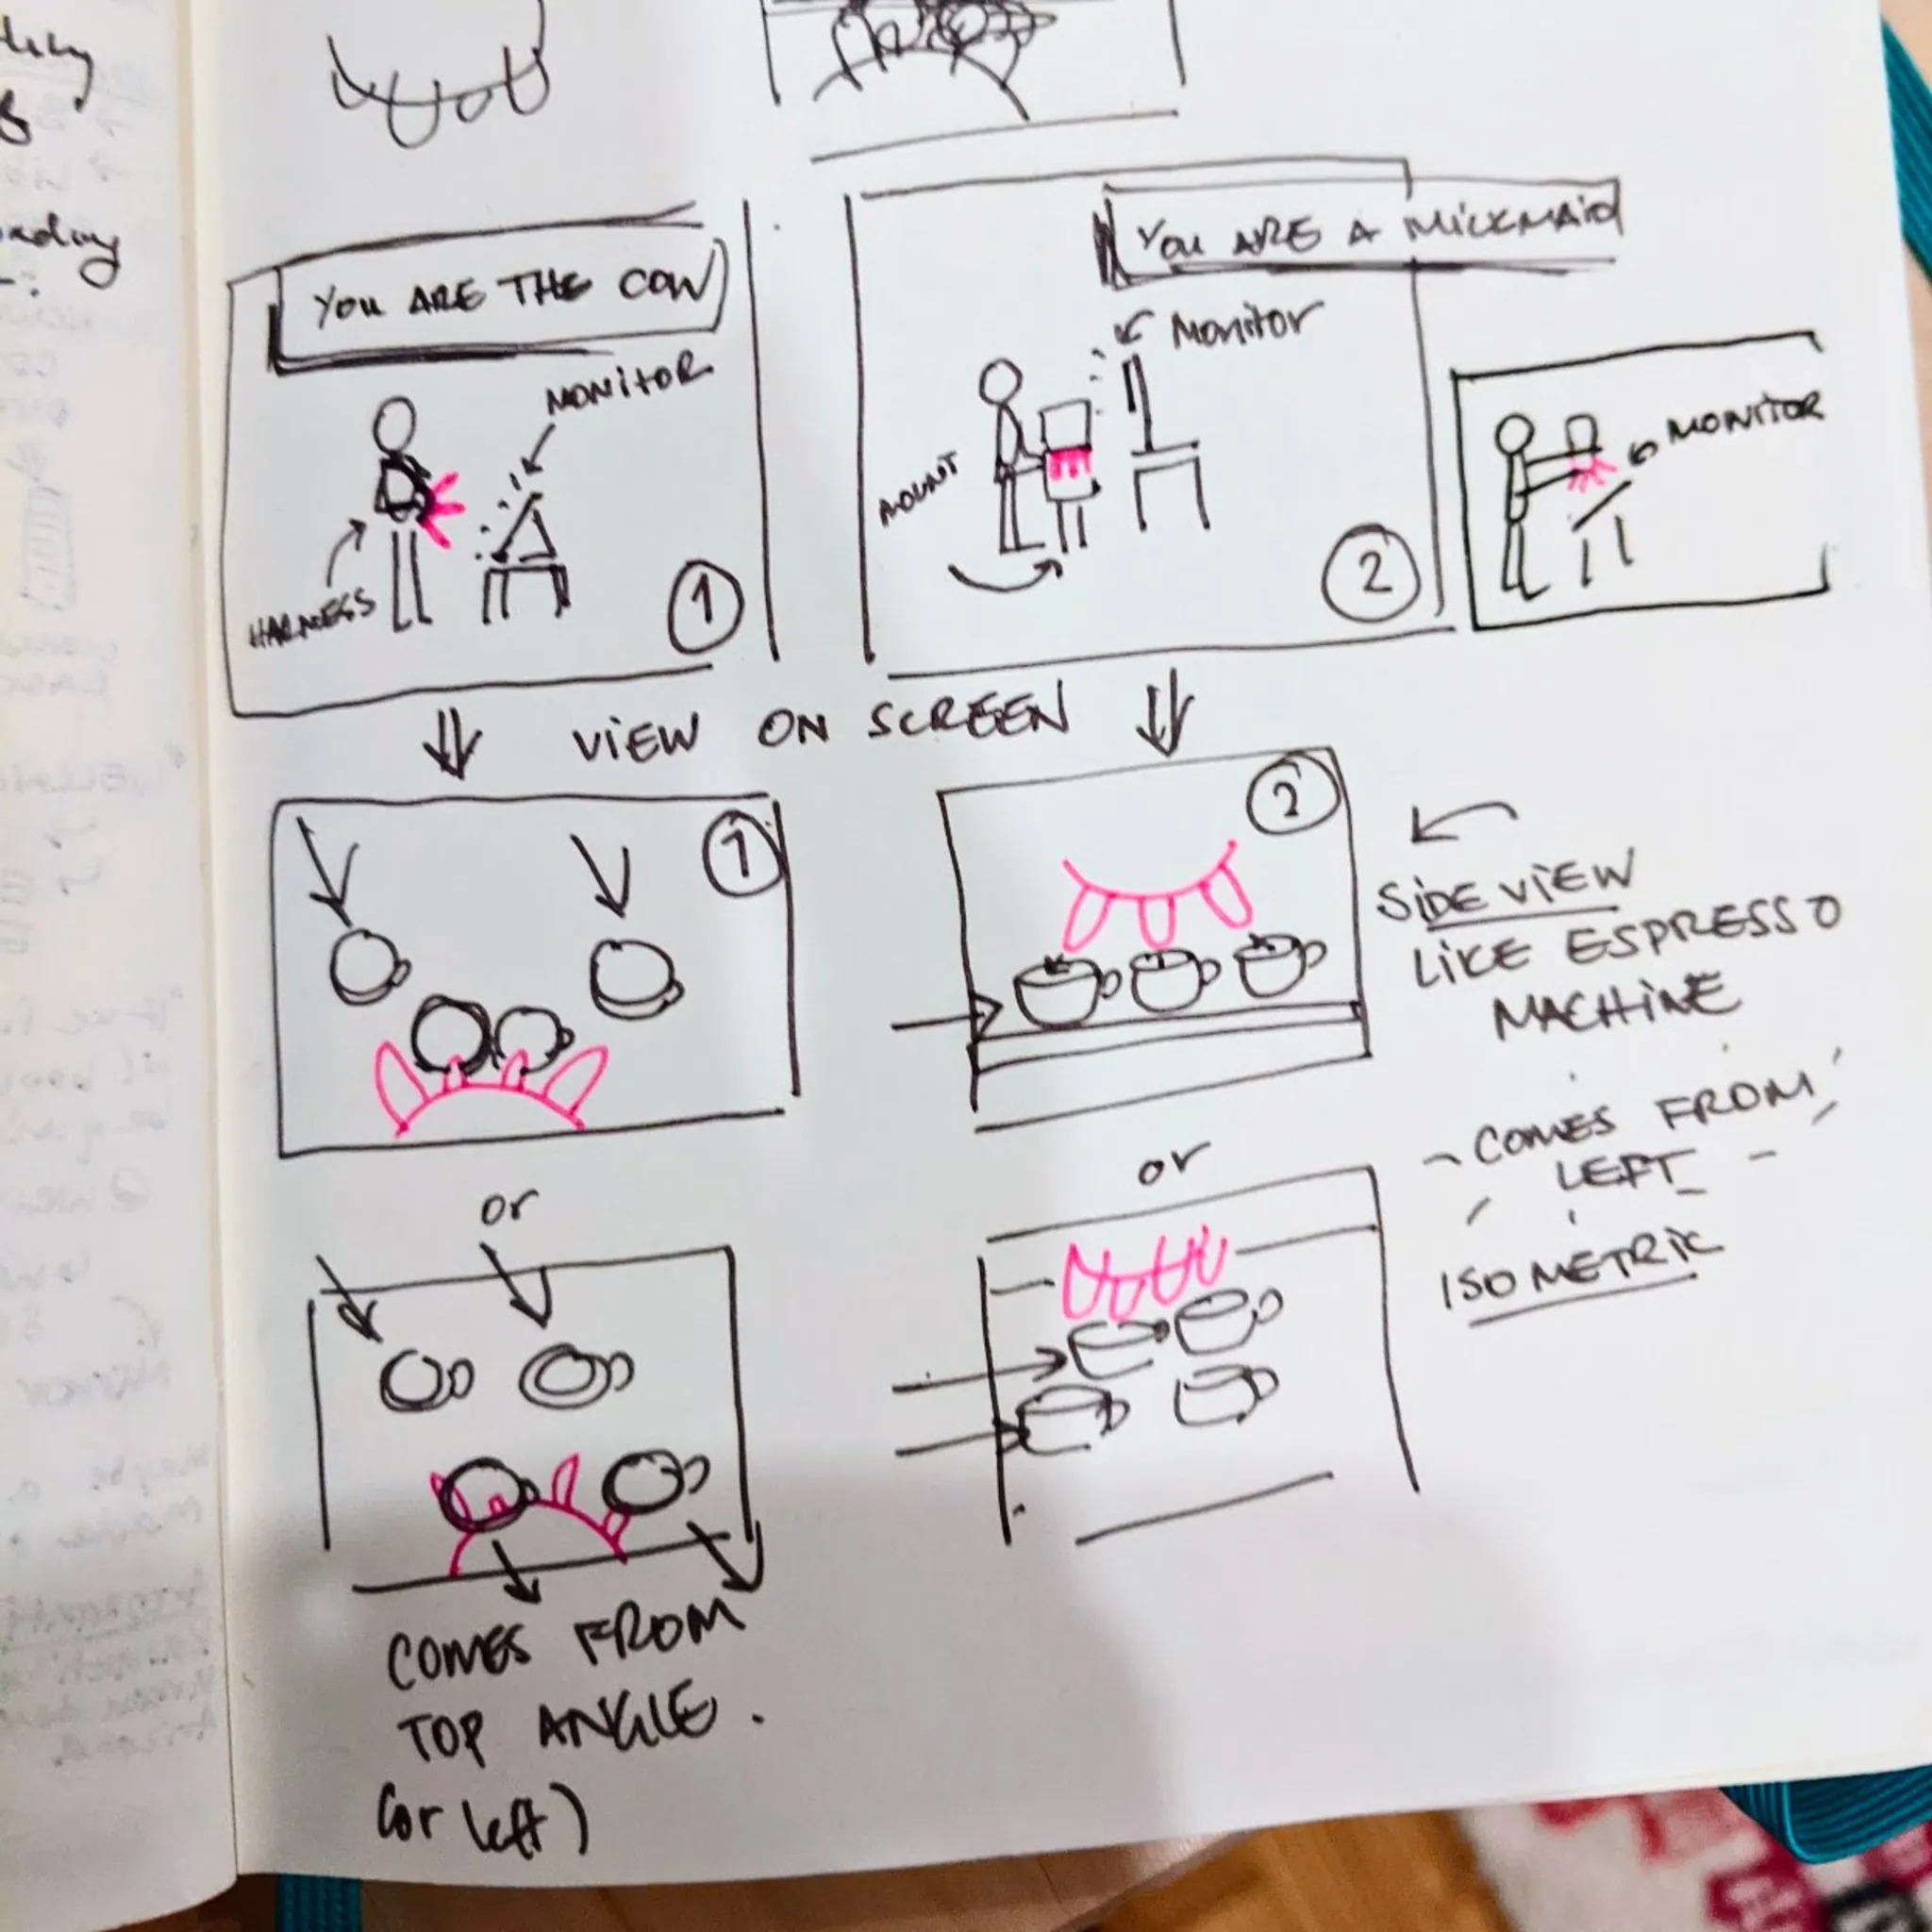 YOU ARE THE COW
MONITOR
HARNESS
1
YOU ARE A MILKMAID
Monitor
MOUNT
2
MONITOR
VIEW ON SCREEN
1
2
SIDE VIEW
LIKE ESPRESSO
MACHINE
or
or
COMES FROM
LEFT
ISOMETRIC
COMES FROM
TOP ANGLE.
(or left)